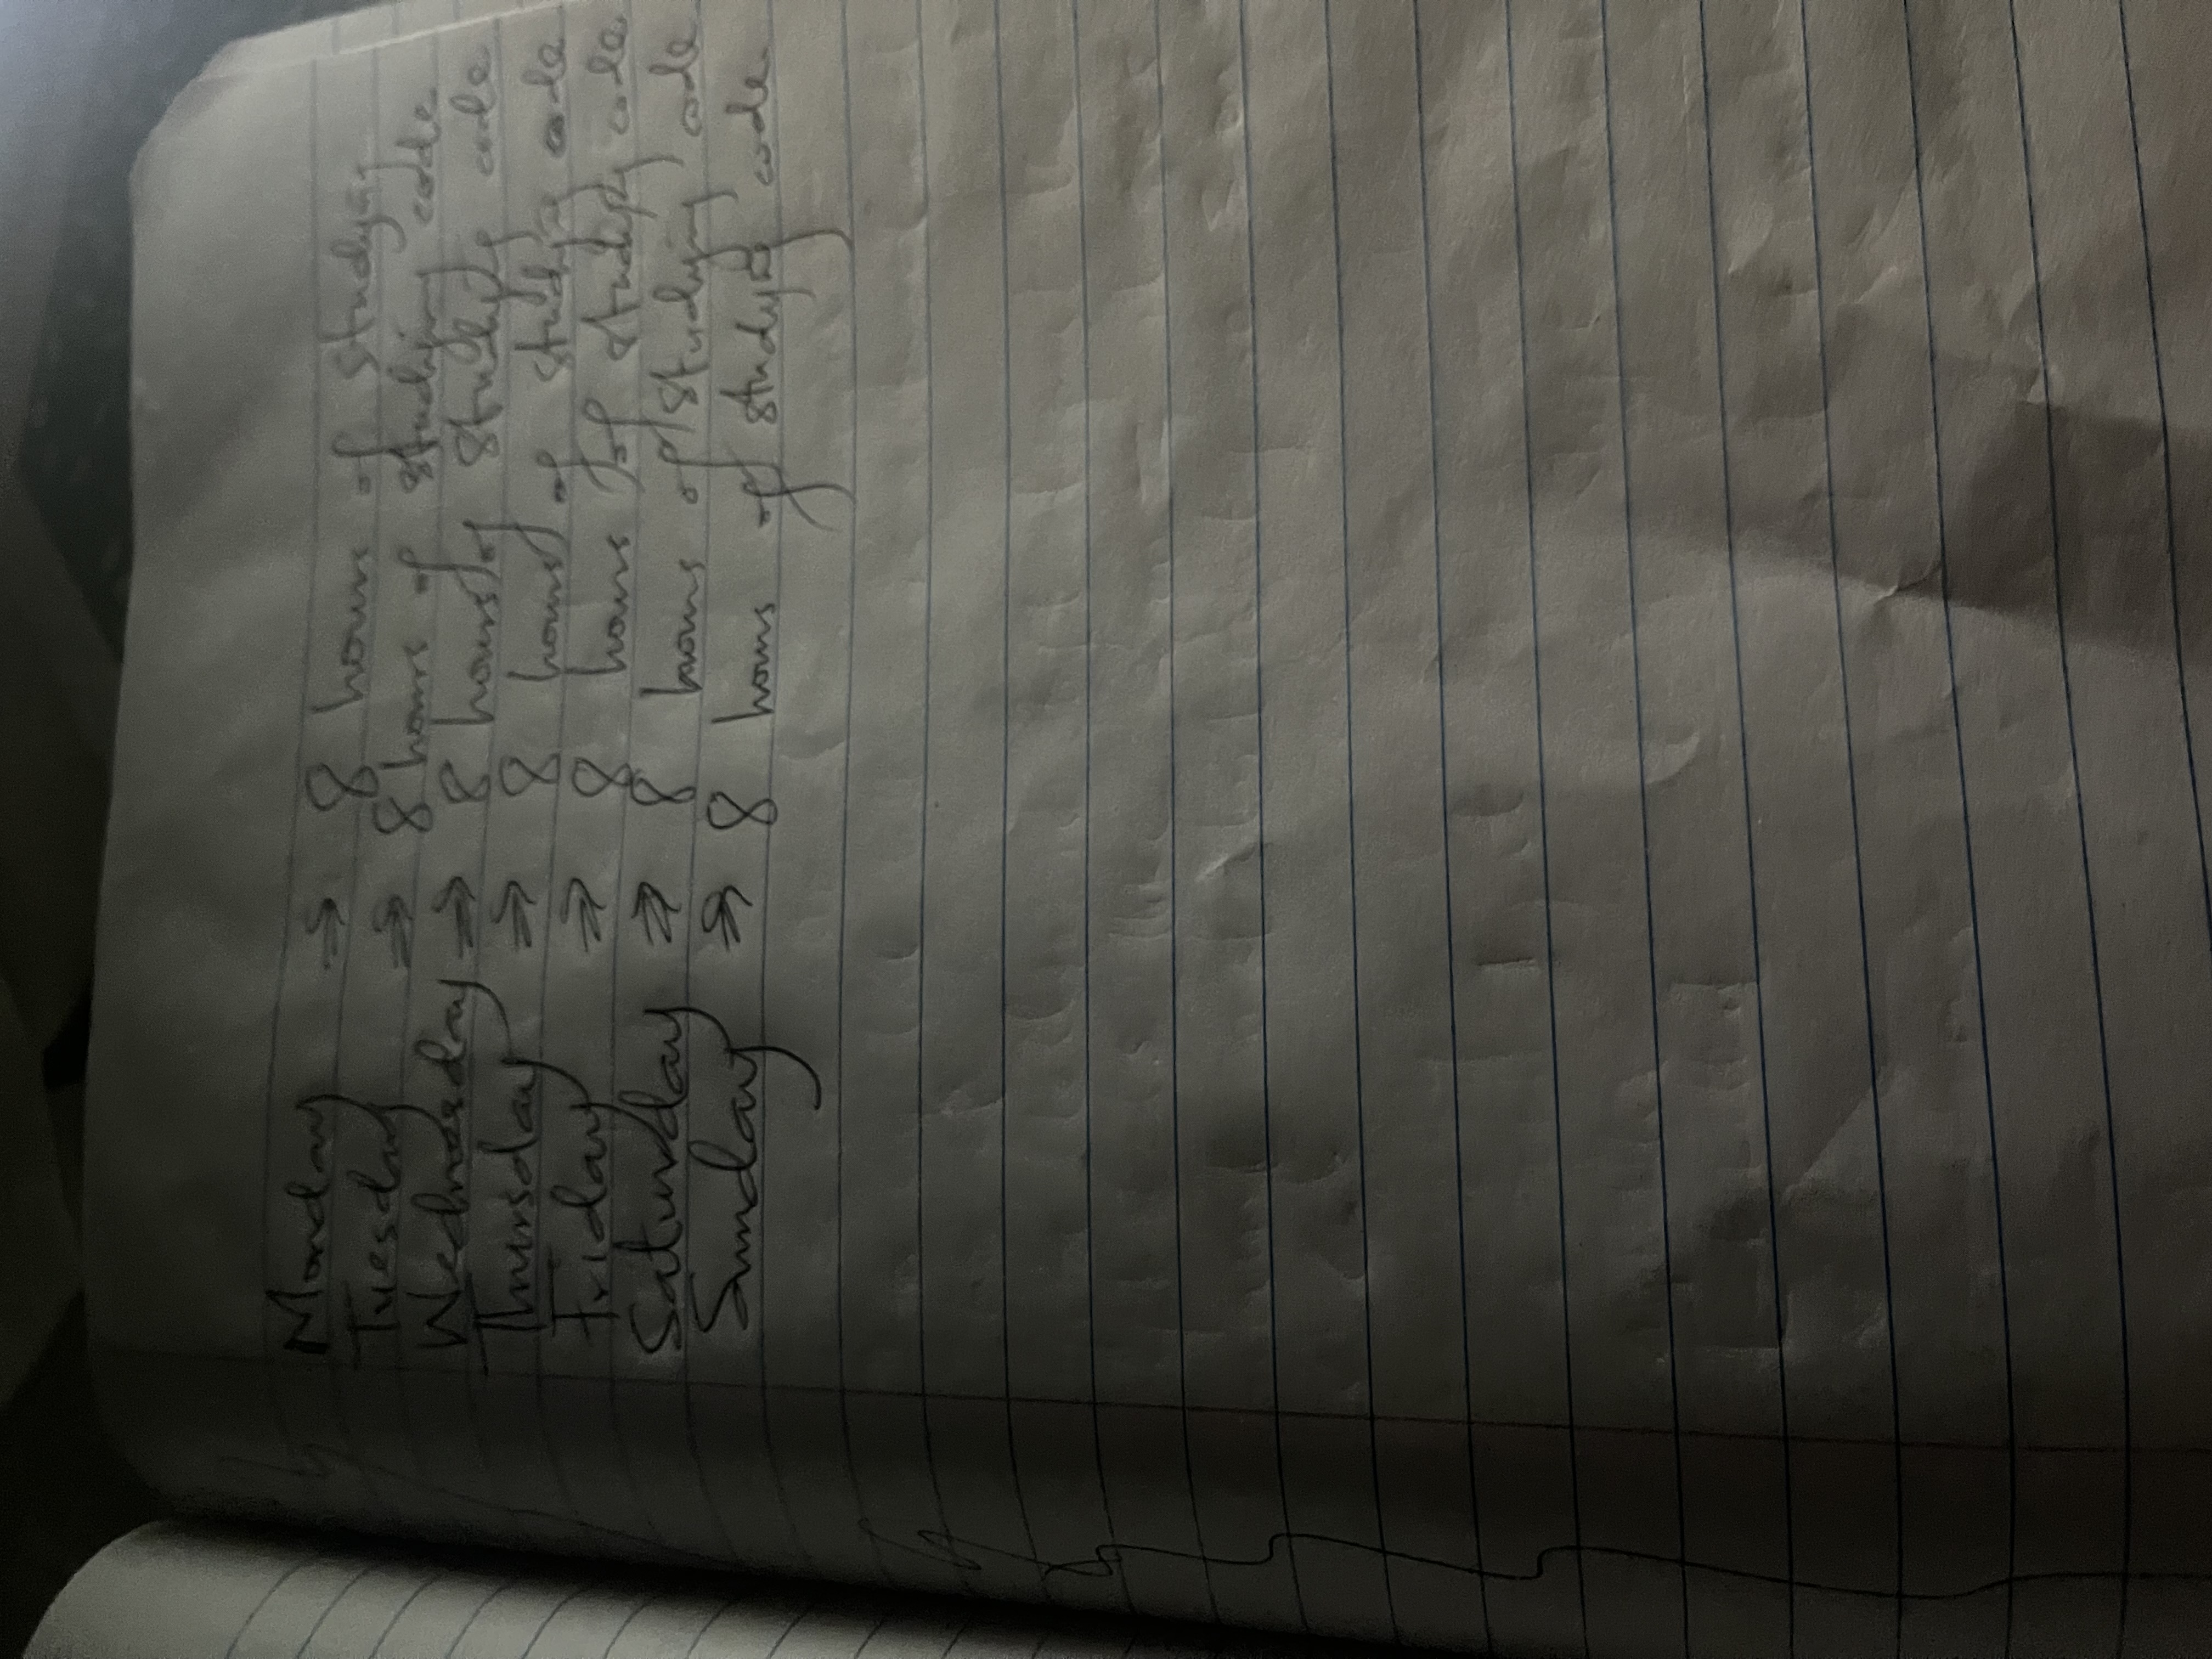 Monday ⇒ 8 hours of studying
Tuesday ⇒ 8 hours of studying code
Wednesday ⇒ 8 hours of studying code
Thursday ⇒ 8 hours of studying code
Friday ⇒ 8 hours of studying code
Saturday ⇒ 8 hours of studying code
Sunday ⇒ 8 hours of studying code